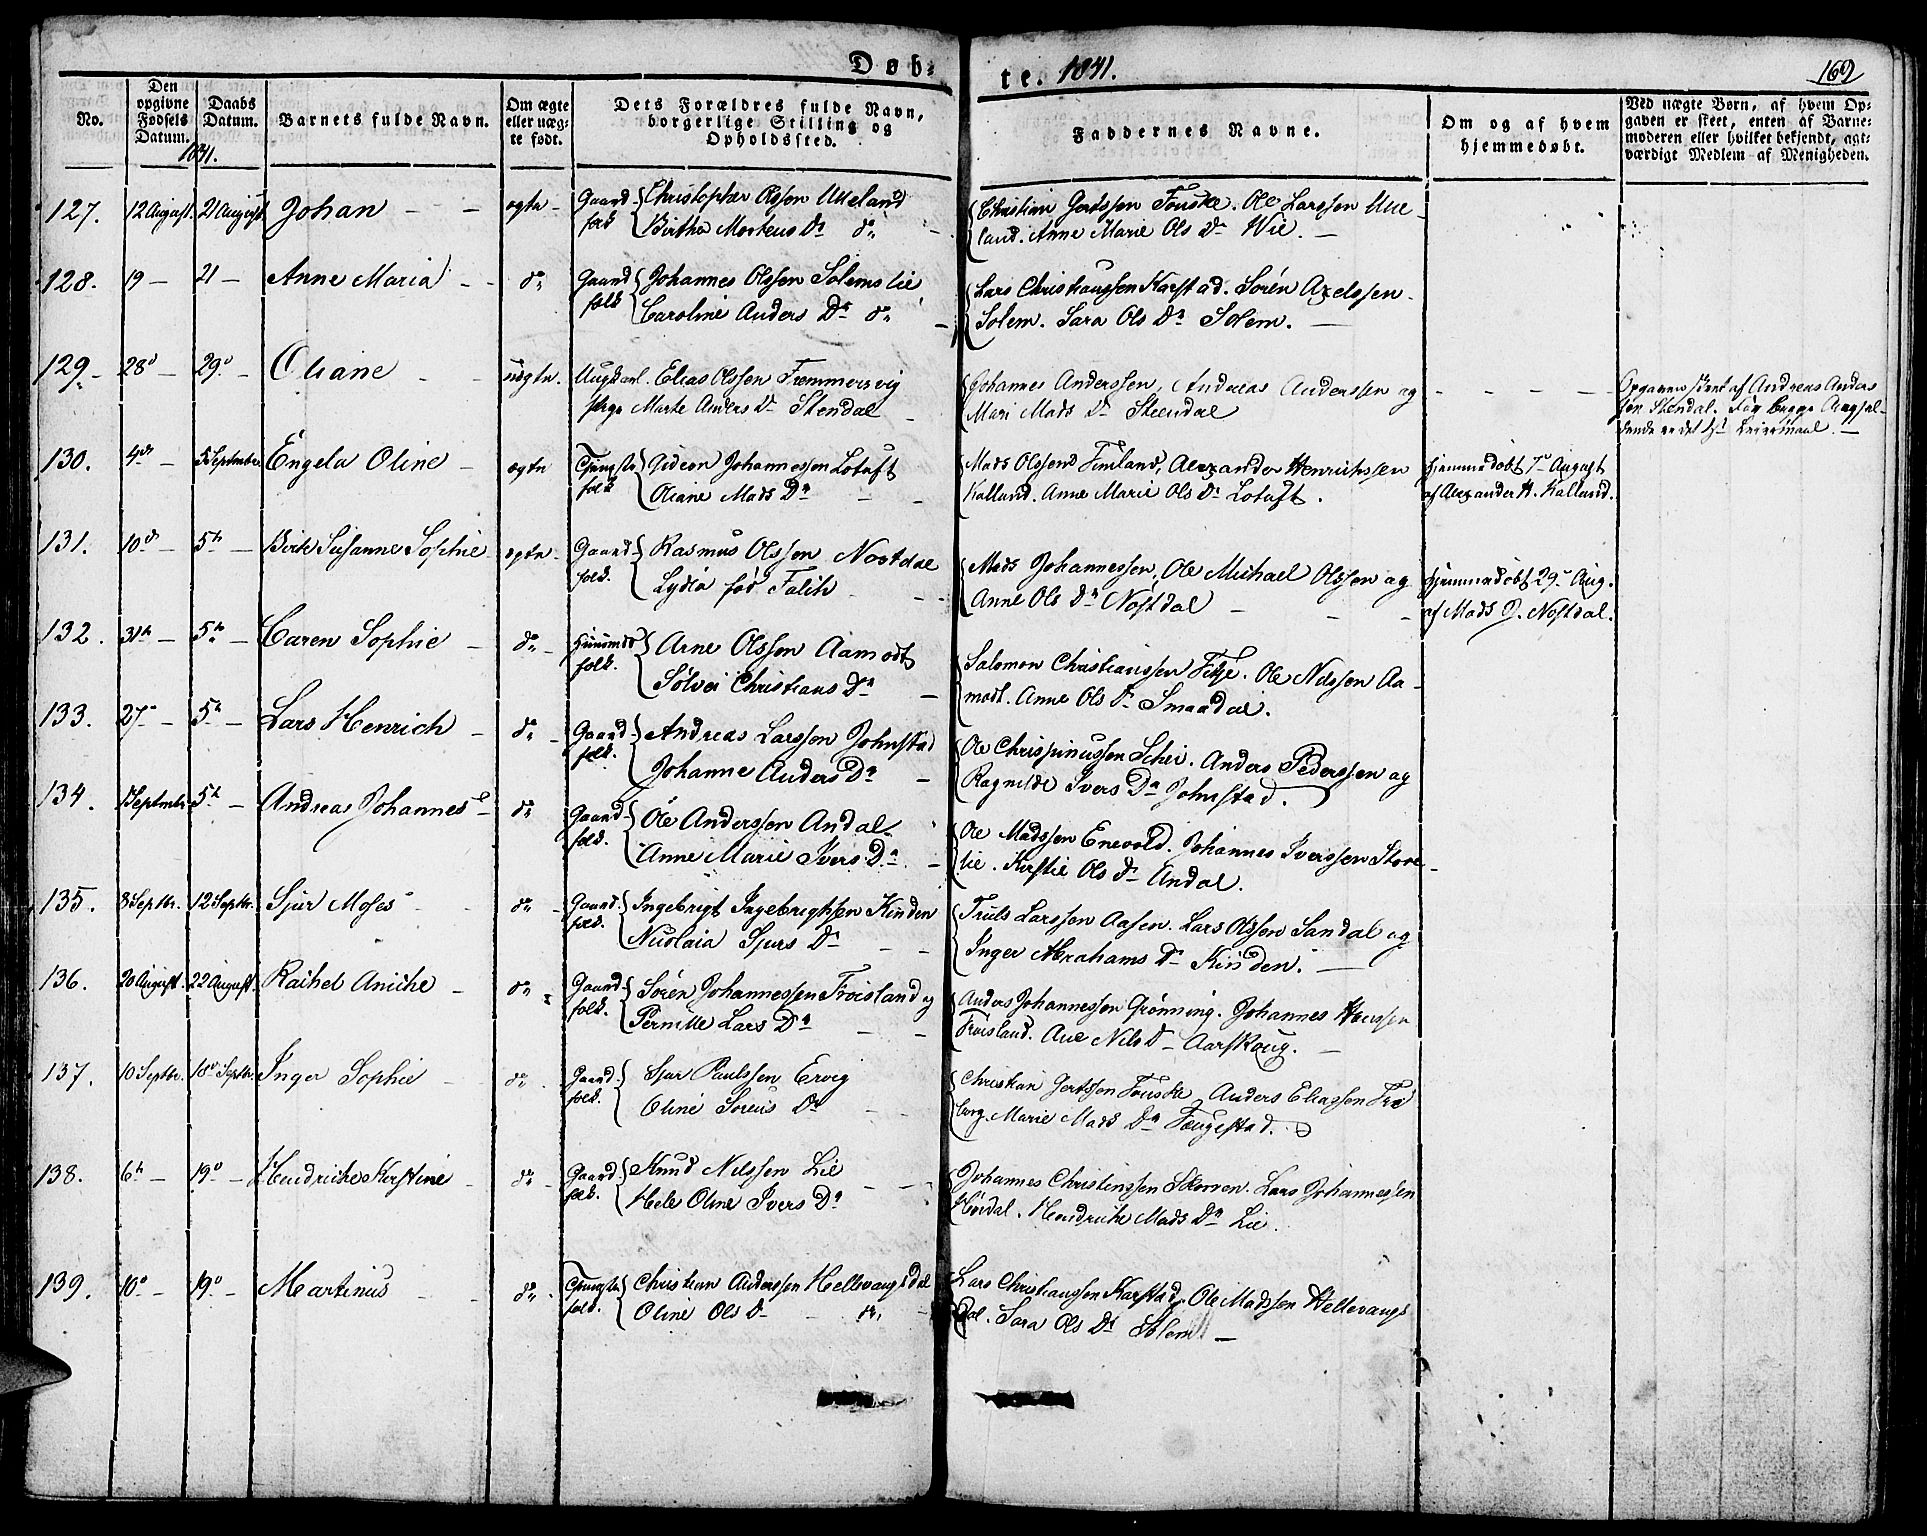 Døb-
te. 1841.
169
No.
Den opgivne Fødsels Datum.
1841.
Daabs Datum.
Barnets fulde Navn.
Om ægte eller uægte født.
Dets Forældres fulde Navn, borgerlige Stilling og Opholdssted.
Faddernes Navne.
Om og af hvem hjemmedøbt.
Ved uægte Børn, af hvem Opgaven er skeet, enten af Barnemoderen eller hvilket bekjendt, agtværdigt Medlem af Menigheden.
127. 12 August. 21 August. Johan - - ægte - Gaard- folk
Christopher Olssen Ukeland
Birthe Mortens Dr do
Christian Gertssen Fouske. Ole Larssen Uke-
land. Anne Marie Ols Dr Wie. -
128. 19 - 21 - Anne Maria - - do Gaard folk
Johannes Olssen Solemslie
Caroline Anders Dr do -
Lars Christianssen Karstad. Søren Axelssen
Solem. Sara Ols Dr Solem. -
129. 28 - 29 - Oliane - - uægte. Ungkarl. Elias Olssen Fremmersvig
pige Marte Anders Dr Stendal -
Johannes Anderssen, Andreas Anderssen og
Mari Mads Dr Steendal - - - -
Opgaven skeet af Andreas Anders
sen Stendal. For begge Angjæl-
dende er det 1st Leiermaal. -
130. 4de - 5 Septembr. Engela Oline - ægte Tjeneste folk
Gideon Johannessen Lotuft
Oliane Mads Dr - -
Mads Olssen Fimland, Alexander Henrichssen
Kalland. Anne Marie Ols Dr Lotuft.
Hjemmedøbt 7 August
af Alexander H. Kalland.
131. 10de - 5te - Birte Susanne Sophie ægte - Gaard- folk.
Rasmus Olssen Nostdal
Lydia fød Falch - -
Mads Johannessen, Ole Michael Olssen og
Anne Ols Dr Nostdal - -
Hjemmedøbt 29 Aug.
af Mads J. Nostdal.
132. 31te - 5te - Caren Sophie - do - Huusmds folk.
Arne Olssen Aamodt
Sølvei Christians Dr -
Salomon Christianssen Fitje. Ole Nilssen Aa-
modt. Anne Ols Dr Smaadal.
133. 27 - 5te - Lars Henrich - do - Gaard- folk.
Andreas Larssen Johnstad
Johanne Anders Dr -
Ole Chrispinussen Schei. Anders Pederssen og
Ragnilde Ivers Dr Johnstad.
134. 1 Septembr 5te - Andreas Johannes - do Gaard- folk.
Ole Anderssen Andal
Anne Marie Ivers Dr. -
Ole Madssen Enevold. Johannes Iverssen Store-
lie. Kirstie Ols Dr Andal.
135. 8 Septbr. 12 Septbr. Sjur Moses - - do - Gaard- folk.
Ingebrigt Ingebrightsen Kinden
Nicolaia Sjurs Dr - -
Truls Larssen Aasen. Lars Olssen Sandal og
Inger Abrahams Dr Kinden. -
136. 20 August. 22 August. Rachel Aniche - do - Gaard- folk.
Søren Johannessen Frøisland og
Pernille Lars Dr - -
Anders Johannessen Grønning. Johannes Hanssen
Frøisland. Ane Nils D. Aarskoug. -
137. 10 Septbr. 18 Septbr. Inger Sophie - do . Gaard- folk.
Sjur Paulssen Ervig
Oline Sørens Dr - -
Christian Gertssen Fouske, Anders Eliassen Fre
berg. Marie Mads Dr Faugestad.
138. 6te - 19 - Hendriche Kirstine - do - Gaard- folk.
Knud Nilssen Lie
Hele Oline Ivers Dr - -
Johannes Christenssen Skorven. Lars Johannessen
Høidal. Hendriche Mads Dr Lie.
139. 10 - 19 - Martinus - - do - Tjeneste folk.
Christian Anderssen Hellevangsdal
Oline Ols Dr -
Lars Christianssen Karstad. Ole Madssen Hellevangs
dal. Sara Ols Dr Solem -